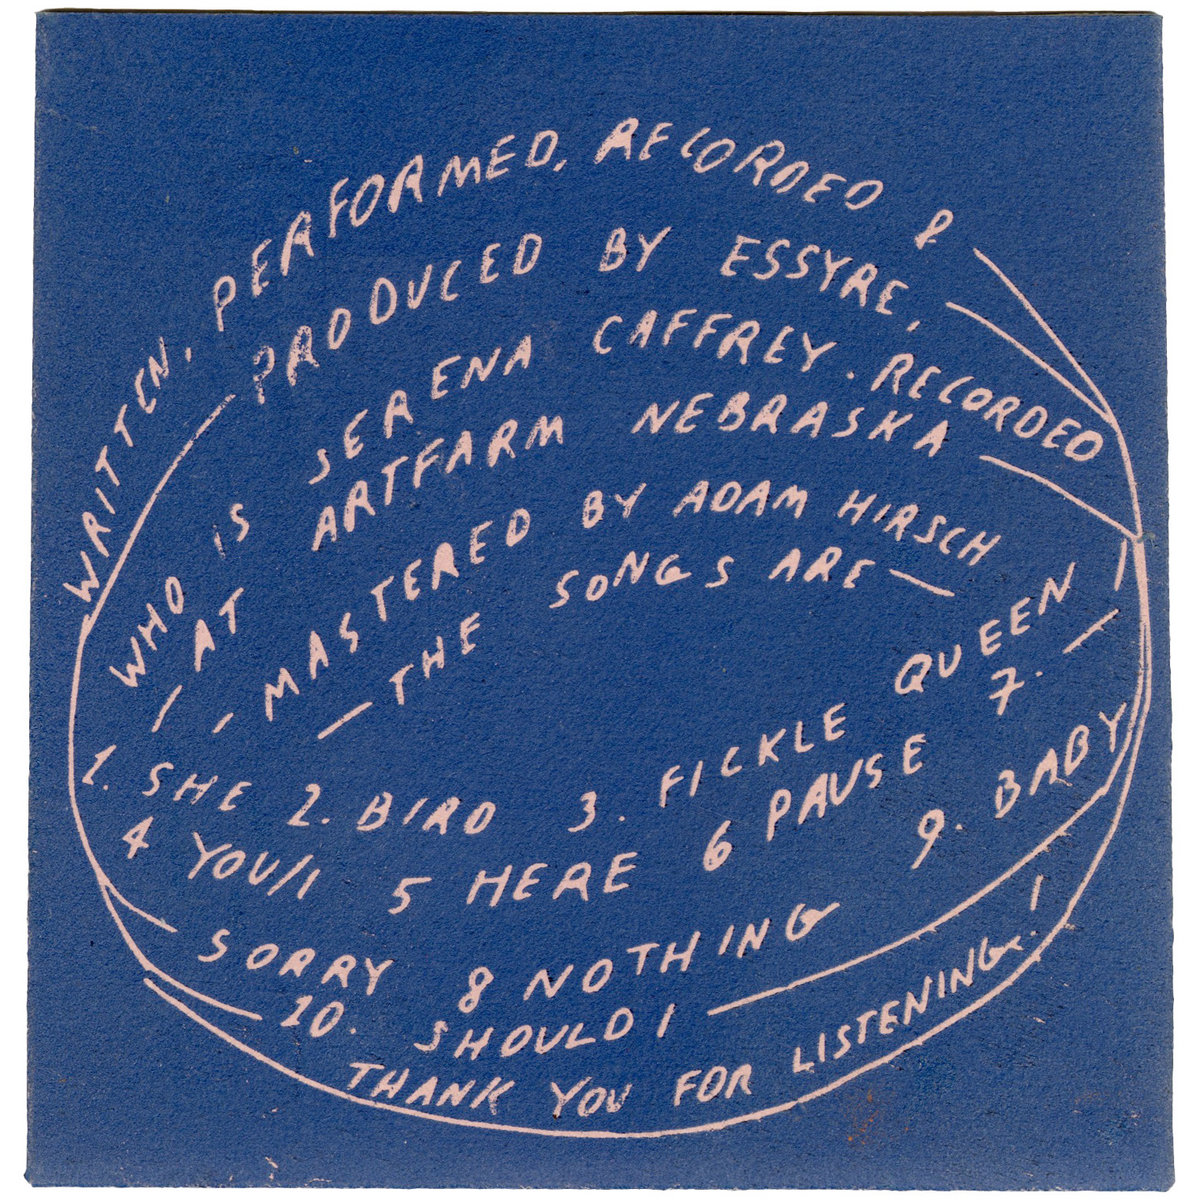 WRITTEN, PERFORMED, RECORDED &
PRODUCED BY ESSYRE,
WHO IS SERENA CAFFREY. RECORDED
AT ARTFARM NEBRASKA
MASTERED BY ADAM HIRSCH
THE SONGS ARE
1. SHE 2. BIRD 3. FICKLE QUEEN
4 YOU/I 5 HERE 6 PAUSE 7.
SORRY 8 NOTHING 9. BABY
10. SHOULD I
THANK YOU FOR LISTENING.!